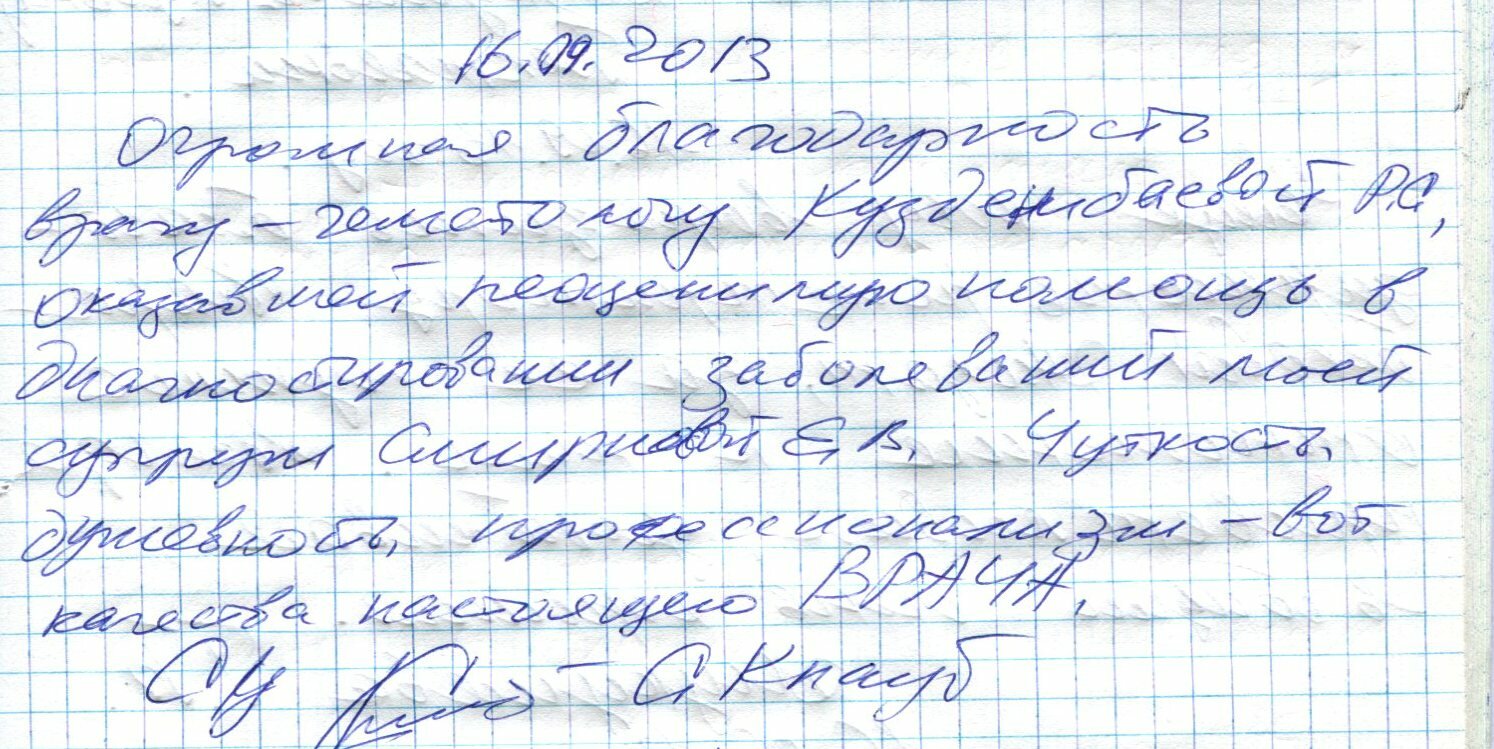 16.09.2013
Огромная благодарность
врачу-гематологу Кузденбаевой Р.С,
оказавшей неоценимую помощь в
диагностировании заболеваний моей
супруги Смирновой Е.В. Чуткость,
душевность, профессионализм - вот
качества настоящего ВРАЧА.
С Кнауб